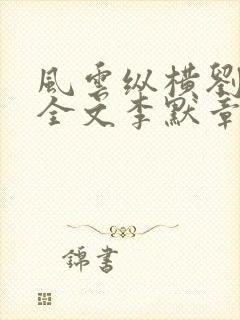 風雲纵横劉
全文李默章
錦書